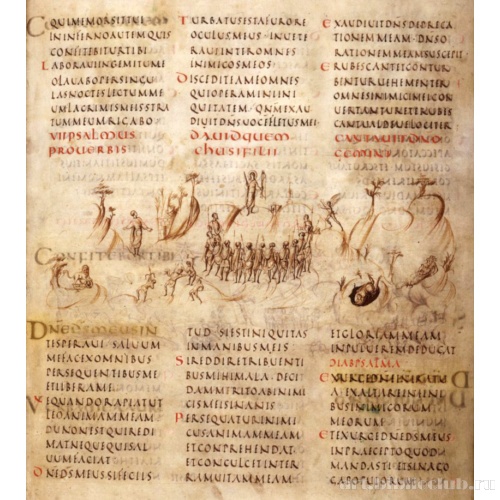 QUIMEMORSITTUI
ININFERNOAUTEMQUIS
CONFITEBITURTIBI
LABORAUIINGEMITUME
OLAUABOPERSINGU
LASNOCTESLECTUMME
UMLACRIMISMEISSTRA
TUMMEUMRIGABO
VIIPSALMUS
PROUERBIS
TURBATUSESTAFURORE
OCULUSMEUS·INUETE
RAUIINTEROMNES
INIMICOSMEOS
DISCEDITEAMEOMNES
QUIOPERAMINIINI
QUITATEM·QNMEXAU
DIUITDNSUOCEFLETUSMEI
DAUIDQUEM
CHUSIFILII
EXAUDIUITDNSDEPRECA
TIONEMMEAMDNSO
RATIONEMMEAMSUSCEPIT
ERUBESCANTETCONTUR
BENTURUEHEMENTER
OMNESINIMICIMEICON
UERTANTURETERUBES
CANTUALDEUELOCITER
CANTAUITDNO
GEMINI
DNEDSMEUSIN
TESPERAUI SALUUM
MEFACEXOMNIBUS
PERSEQUENTIBUSME
ETLIBERAME
NEQUANDORAPIATUT
LEOANIMAMMEAM
DUNONESTQUIREDI
MATNEQUEQUISAL
UUMFACIAT
DNEDSMEUSSIFECIIS
TUD SIESTINIQUITAS
INMANIBUSMEIS
SIREDDIRETRIBUENTI
BUSMIHIMALA·DECI
DAMMERITOABINIMI
CISMEISINANIS
PERSEQUATURINIMI
CUSANIMAMMEAM
ETCONPREHENDAT
ETCONCULCETINTER
RAMUITAMMEAM
ETGLORIAMMEAM
INPULUEREMDEDUCAT
DIAPSALMA
EXURGEDNEINIRATU
A EXALTAREINFINI
BUSINIMICORUM
MEORUM
ETEXURGEDNEDSMEUS
INPRAECEPTOQUOD
MANDASTIETSINAGO
GAPOPULORUM